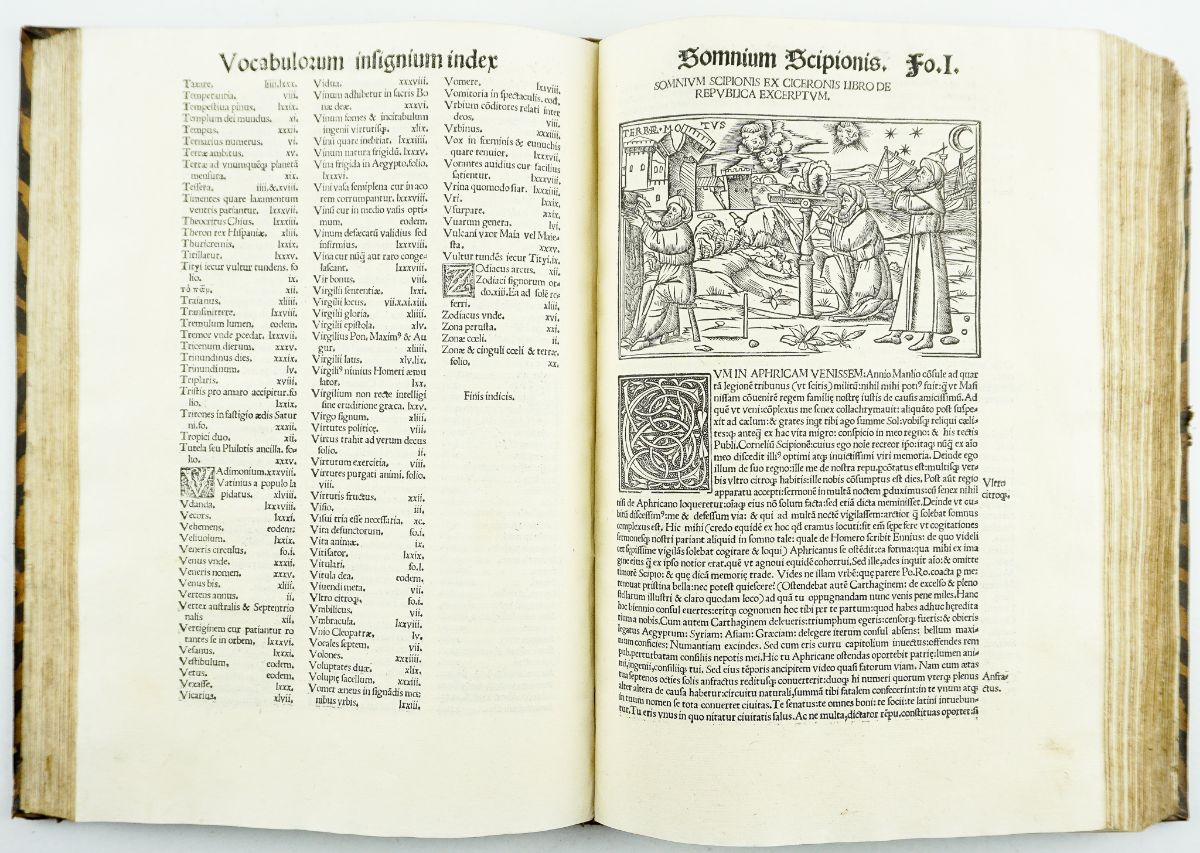 Vocabulorum insignium index
Taxare, iiii.lxxx.
Temperantia, viii.
Tempestiua pinus, lxxix.
Templum dei mundus, xi.
Tempus, xxxi.
Ternarius numerus, vi.
Terræ ambitus, xv.
Terræ ad vnumquẽq planetã
mensura, xix.
Tessera, iiii.&.xviii.
Timentes quare laxamentum
ventris patiantur, lxxxvii.
Theocritus Chius, lxxiiii.
Theron rex Hispaniæ, xliii.
Thuricremis, lxxix.
Titillatur, lxxxv.
Tityi iecur vultur tundens, fo
lio, ix.
xii.
Traianus, xliiii.
Transmittere, lxxviii.
Tremulum lumen, eodem.
Tremor vnde pcedat, lxxxvii.
Tricenum dierum, xxxv.
Trinundinus dies, xxxix.
Trinundinum, lv.
Triplaris, xviii.
Tristis pro amaro accipitur.fo
lio, lxxix.
Tritones in fastigio ædis Satur
ni.fo, xxxii.
Tropici duo, xii.
Tutela seu Philotis ancilla, fo-
lio, xxxv.
VAdimonium.xxxviii.
Vatinius a populo la
pidatus, xlviii.
Vdanda, lxxviii.
Vecors, lxxxi.
Vehemens, eodem:
Veliuolum, lxxix.
Veneris circulus, fo.i.
Venus vnde, xxxii.
Veneris nomen, xxxv.
Venus bis, xliii.
Vertens annus, ii.
Vertex australis & Septentrio
nalis xii.
Vertiginem cur patiantur ro
tantes se in orbem, lxxxvi.
Vesanus, lxxxi.
Vestibulum, eodem.
Vetus, eodem.
Vexasse, lxxx.
Vicarius, xlvii.
Vidua, xxxviii.
Vinum adhibetur in sacris Bo
næ deæ, xxxvi.
Vinum fomes & incitabulum
ingenii virtutisq, xlix.
Vini quare inebriat, lxxxiiii.
Vinum natura frigidũ, lxxxv.
Vina frigida in Aegypto.folio.
lxxxvi.
Vini vasa semiplena cur in aco
rem corrumpantur, lxxxviii.
Vinũ cur in medio vasis opti-
mum, eodem.
Vinum defæcatũ validius sed
infirmius, lxxxviii.
Vina cur nũq̃ aut raro conge-
lascant, lxxxviii.
Vir bonus, viii.
Virgilii sententiæ, lxxi.
Virgilii locus, vii.x.xi.xiii.
Virgilii gloria, xliiii.
Virgilii epistola, xlv.
Virgilius Pon, Maximꝰ & Au
gur, xliiii.
Virgilii laus, xlv.lix.
Virgiliꝰ nimius Homeri æmu
lator, lxx.
Virgilium non recte intelligi
sine eruditione græca, lxxv.
Virgo signum, xliii.
Virtutes politicę, viii.
Virtus trahit ad verum decus
folio, ii.
Virtutum exercitia, viii.
Virtutes purgati animi, folio,
viii.
Virtutis fructus, xxii.
Visio, iii.
Visui tria esse necessaria, xc.
Vita defunctorum, fo.i.
Vita animæ, ix.
Vitisator, lxxix,
Vitulari, fo.l.
Vitula dea, eodem,
Viuendi meta, vii.
Vltro citroq, fo.i.
Vmbilicus, vii.
Vmbracula, lxxviii.
Vnio Cleopatræ, lv.
Vocales septem, vii.
Volones, xxiiii.
Voluptates duæ, xlix.
Volupię sacellum, xxxiii.
Vomer æneus in signãdis moe
nibus vrbis, lxxiii.
Vomere, lxviii.
Vomitoria in spectaculis, eod,
Vrbium cõditores relati inter
deos, viii.
Vrbinus, xxxiiii.
Vox in fœminis & eunuchis
quare tenuior, lxxxvii,
Vorantes auidius cur facilius
satientur, lxxxviii.
Vrina quomodo fiat, lxxxiiii,
Vri, lxxix,
Vsurpare, xxix,
Vuarum genera, lvi,
Vulcani vxor Maia vel Maie-
sta, xxxv.
Vultur tundẽs iecur Tityi,ix.
ZOdiacus arcus, xii.
Zodiaci signorum or-
do.xiii.Et ad solẽ re-
ferri, xliii,
Zodiacus vnde, xvi,
Zona perusta, xxi,
Zonæ cœli, ii.
Zonæ & cinguli cœli & terræ,
folio, xx.
Finis indicis.
Somnium Scipionis. Fo.I.
SOMNIVM SCIPIONIS EX CICERONIS LIBRO DE
REPVBLICA EXCERPTVM.
TERRÆ·MOTVS
CVM IN APHRICAM VENISSEM: Annio Manlio cõsule ad quar
tã legionẽ tribunus (vt scitis) militũ: nihil mihi potiꝰ fuit: q̃ vt Masi
nissam cõuenirẽ regem familię nostrę iustis de causis amicissimũ. Ad
quẽ vt veni: cõplexus me senex collachrymauit: aliquãto post suspe-
xit ad cælum: & grates ingt tibi ago summe Sol: vobisq reliqui cæli-
tes: q̃ anteq̃ ex hac vita migro: conspicio in meo regno: & his tectis
Publi, Corneliũ Scipionẽ: cuius ego noĩe recreor ipso: itaq nũq̃ ex aĩo
meo discedit illiꝰ optimi atq inuictissimi viri memoria. Deinde ego
illum de suo regno: ille me de nostra repu, pcõtatus est: multisq ver-
bis vltro citroq habitis: ille nobis cõsumptus est dies. Post aũt regio
apparatu accepti: sermonẽ in multã noctem pduximus: cũ senex nihil
nisi de Aphricano loqueretur: oĩaq eius nõ solum facta: sed etiã dicta meminisset. Deinde vt cu-
bitũ discessimꝰ: me & defessum via: & qui ad multã noctẽ vigilassem: arctior q̃ solebat somnus
complexus est. Hic mihi (credo equidẽ ex hoc qd eramus locuti: fit em̃ sepe fere vt cogitationes
sermonesq nostri pariant aliquid in somno tale: quale de Homero scribit Ennius: de quo videli
cet sępissime vigilãs solebat cogitare & loqui) Aphricanus se ostẽdit: ea forma: qua mihi ex ima
gine eius q̃ ex ipso notior erat. quẽ vt agnoui equidẽ cohorrui, Sed ille, ades inquit aĩo: & omitte
timorẽ Scipio: & quę dicã memorię trade. Vides ne illam vrbẽ: quę parere Po.Ro.coacta p me:
renouat pristina bella: nec potest quiescere? (Ostendebat autẽ Carthaginem: de excelso & pleno
stellarum illustri & claro quodam loco) ad quã tu oppugnandam nunc venis pene miles. Hanc
hoc biennio consul euertes: eritq cognomen hoc tibi per te partum: quod habes adhuc hęredita
tiuma nobis. Cum autem Carthaginem deleueris: triumphum egeris: censorq fueris: & obieris
legatus Aegyptum: Syriam: Asiam: Græciam: delegere iterum consul absens: bellum maxi-
mum conficies: Numantiam excindes. Sed cum eris curru capitolium inuectus: offendes rem
pub, perturbatam consiliis nepotis mei. Hic tu Aphricane ostendas oportebit patrię: lumen ani-
mi, ingenii, consiliiq tui. Sed eius tẽporis ancipitem video quasi fatorum viam. Nam cum ætas
tua septenos octies solis anfractus reditusq conuerterit: duoq hi numeri quorum vterq plenus
alter altera de causa habetur: circuitu naturali, summã tibi fatalem confecerint: in te vnum atq
in tuum nomen se tota conuertet ciuitas. Te senatus: te omnes boni: te socii: te latini intuebun-
tur. Tu eris vnus in quo nitatur ciuitatis salus. Ac ne multa, dictator rẽpu, constituas oportet: si
Vltro
citroq,
Anfra-
ctus.